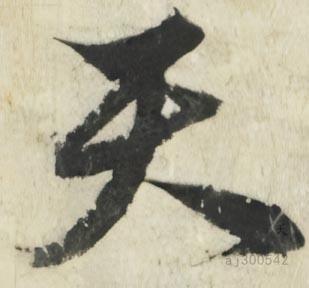 天
aj300542